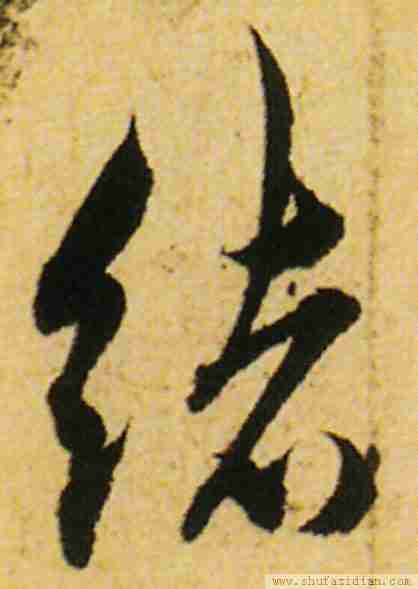 緒
www.shufazidian.com